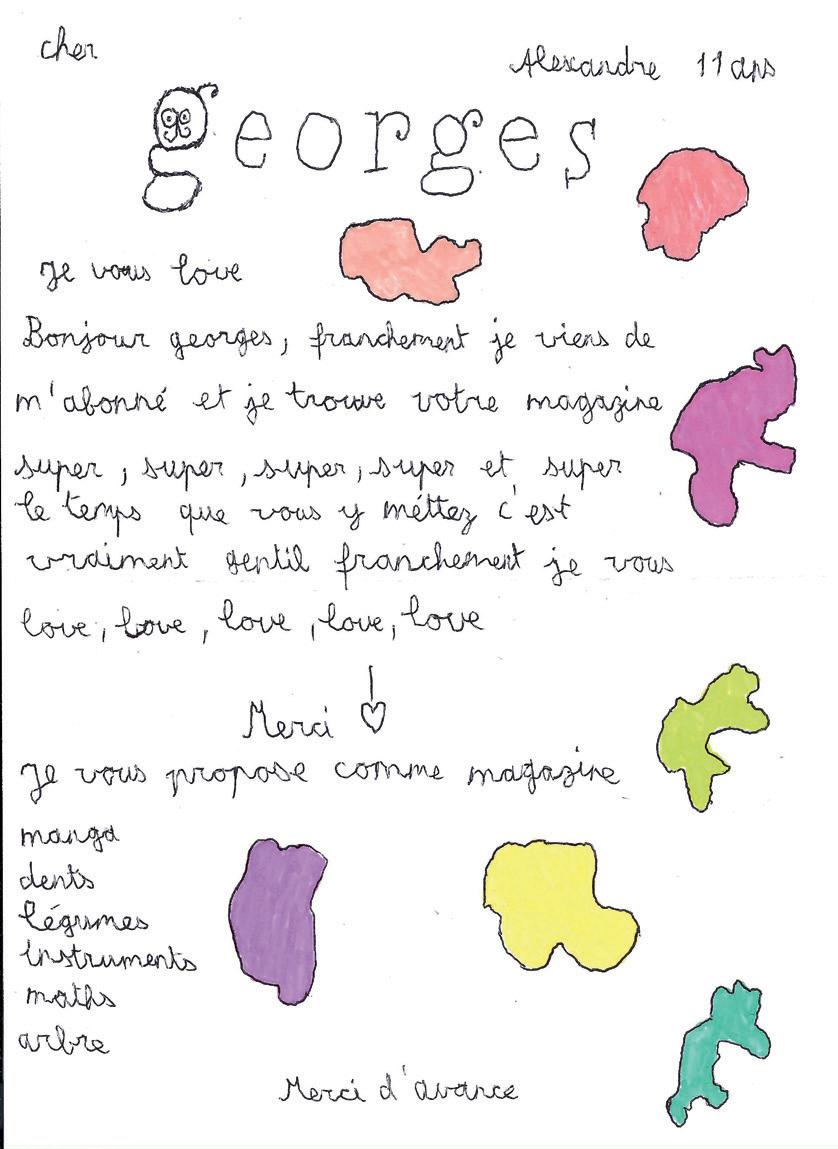 cher
Alexandre 11 ans
georges
Je vous love
Bonjour georges, franchement je viens de
m'abonné et je trouve votre magazine
super, super, super, super et super
le temps que vous y méttez c'est
vraiment gentil franchement je vous
love, love, love, love, love
Merci
Je vous propose comme magazine
manga
dents
légumes
instruments
maths
arbre
Merci d'avance